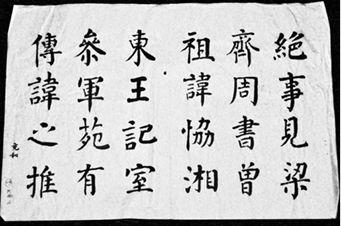 絶事見梁
齊周書曾
祖諱恊湘
東王記室
叅軍苑有
傳諱之推